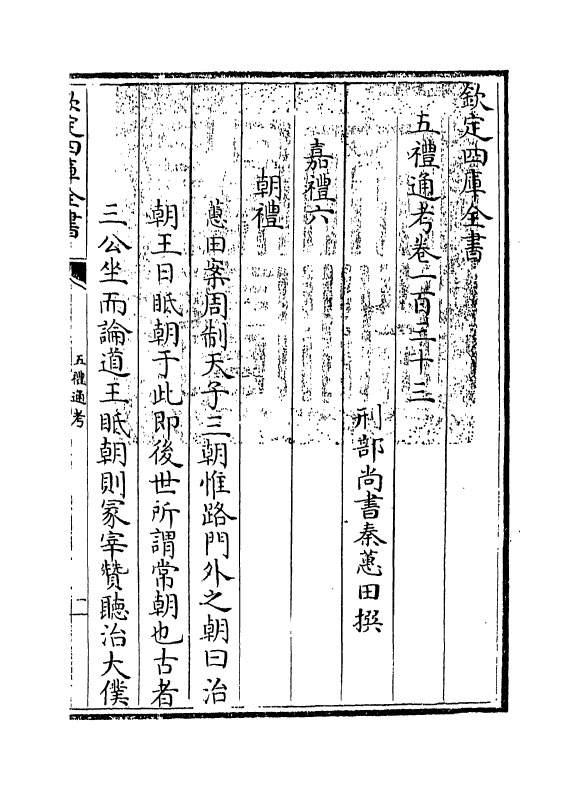 欽定四庫全書
五禮通考卷一百三十三
刑部尚書秦蕙田撰
嘉禮六
朝禮
蕙田案周制天子三朝惟路門外之朝曰治
朝王日眡朝于此即後世所謂常朝也古者
三公坐而論道王眡朝則冢宰贊聽治大僕
欽定四庫全書
五禮通考
一